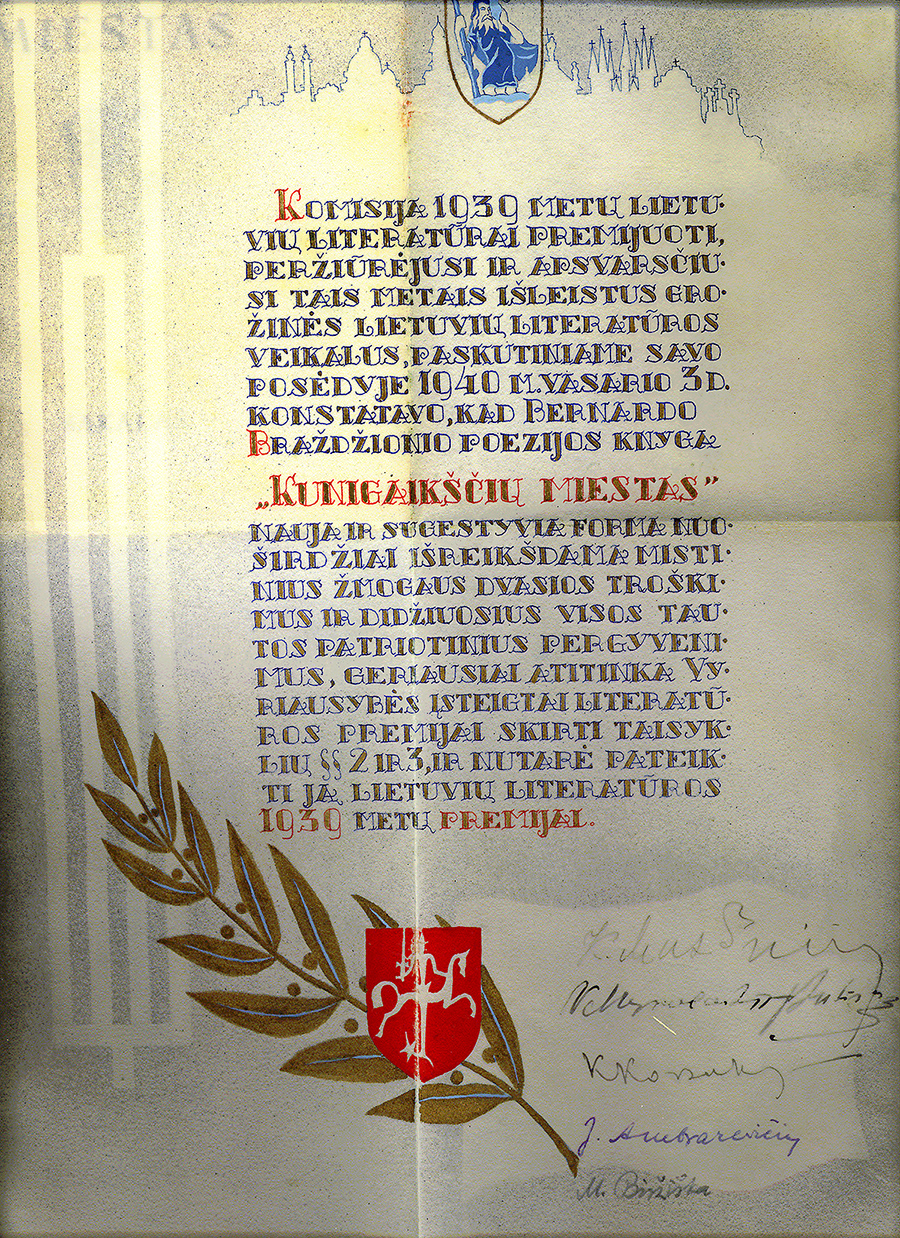 MIESTAS
KOMISIJA 1939 METŲ LIETU-
VIŲ LITERATŪRAI PREMIJUOTI,
PERŽIŪRĖJUSI IR APSVARSČIU-
SI TAIS METAIS IŠLEISTUS GRO-
ŽINĖS LIETUVIŲ LITERATŪROS
VEIKALUS, PASKUTINIAME SAVO
POSĖDYJE 1940 M. VASARIO 3 D.
KONSTATAVO, KAD BERNARDO
BRAŽDŽIONIO POEZIJOS KNYGA
„KUNIGAIKŠČIŲ MIESTAS”
NAUJA IR SUGESTYVIA FORMA NUO-
ŠIRDŽIAI IŠREIKŠDAMA MISTI-
NIUS ŽMOGAUS DVASIOS TROŠKI-
MUS IR DIDŽIUOSIUS VISOS TAU-
TOS PATRIOTINIUS PERGYVENI-
MUS, GERIAUSIAI ATITINKA VY-
RIAUSYBĖS ĮSTEIGTAI LITERATŪ-
ROS PREMIJAI SKIRTI TAISYK-
LIŲ §§ 2 IR 3, IR NUTARĖ PATEIK-
TI JĄ LIETUVIŲ LITERATŪROS
1939 METŲ PREMIJAI.
J. Ambrazevičius
M. Biržiška